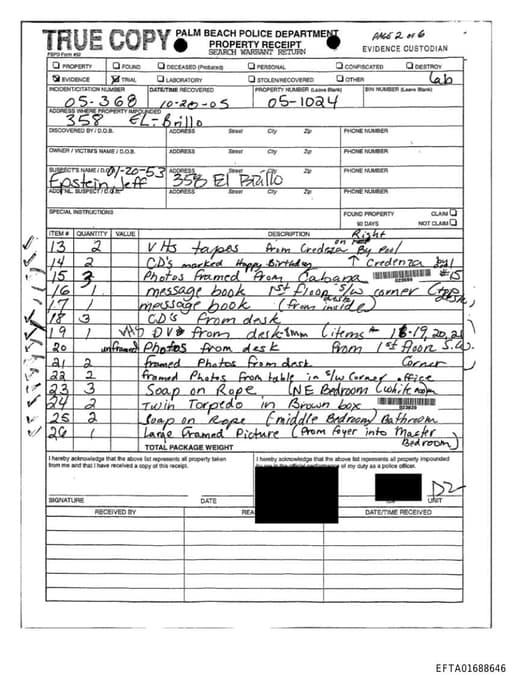 TRUE COPY
PALM BEACH POLICE DEPARTMENT
PROPERTY RECEIPT
SEARCH WARRANT RETURN
PAGE 2 of 6
EVIDENCE CUSTODIAN
PBPD Form #92
PROPERTY FOUND DECEASED (Probated) PERSONAL CONFISCATED DESTROY
EVIDENCE TRIAL LABORATORY STOLEN/RECOVERED OTHER Lab
INCIDENT/CITATION NUMBER DATE/TIME RECOVERED PROPERTY NUMBER (Leave Blank) BIN NUMBER (Leave Blank)
05-368 10-20-05 05-1024
ADDRESS WHERE PROPERTY IMPOUNDED
358 EL-Brillo
DISCOVERED BY / D.O.B. ADDRESS Street City Zip PHONE NUMBER
OWNER / VICTIM'S NAME / D.O.B. ADDRESS Street City Zip PHONE NUMBER
SUSPECT'S NAME / D.O.B. 01-20-53 ADDRESS Street City Zip PHONE NUMBER
Epstein, Jeff 358 El Brillo
ADD'NL. SUSPECT / D.O.B. ADDRESS Street City Zip PHONE NUMBER
SPECIAL INSTRUCTIONS FOUND PROPERTY CLAIM
90 DAYS NOT CLAIM
ITEM # QUANTITY VALUE DESCRIPTION Right
13 2 VHS tapes from Credenza on By Pool
14 2 CD's marked Happy Birthday ↑ Credenza
15 3 Photos framed from Cabana #15
16 1 message book 1st floor S/W corner (top desk)
17 1 message book (from inside)
18 3 CD's from desk
19 1 DV from desk 8mm (items 16-19, 20, 21
20 unframed Photos from desk from 1st floor S.W.
21 2 framed Photos from desk Corner)
22 2 framed Photos from table in S/W Corner office
23 3 Soap on Rope (NE Bedroom (white room
24 2 Twin Torpedo in Brown box
25 2 Soap on Rope (middle Bedroom) Bathroom
26 1 Large Framed Picture (from foyer into Master Bedroom)
TOTAL PACKAGE WEIGHT
I hereby acknowledge that the above list represents all property taken from me and that I have received a copy of this receipt.
I hereby acknowledge that the above list represents all property impounded by me in the official performance of my duty as a police officer.
SIGNATURE DATE UNIT D2
RECEIVED BY REA DATE/TIME RECEIVED
EFTA01688646